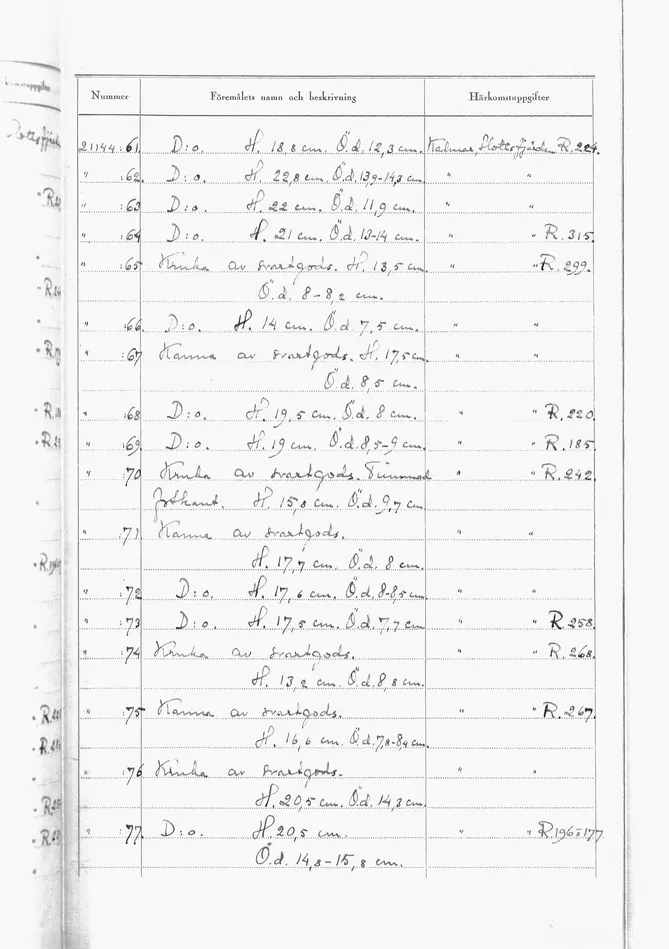 Nummer Föremålets namn och beskrivning Härkomstuppgifter
21144:61. D:o. H. 18,8 cm. Ö.d. 12,3 cm. Kalmar, Slottsfjärden R. 224.
" :62. D:o. H. 22,8 cm. Ö.d. 13,9-14,3 cm. " "
" :63 D:o. H. 22 cm. Ö.d. 11,9 cm. " "
" :64 D:o. H. 21 cm. Ö.d. 13-14 cm. " " R. 315.
" :65 Kruka av svartgods. H. 13,5 cm. " " R. 299.
Ö.d. 8-8,2 cm.
" :66. D:o. H. 14 cm. Ö.d 7,5 cm. " "
" :67 Kanna av svartgods. H. 17,5 cm. " "
Ö.d. 8,5 cm.
" :68 D:o. H. 19,5 cm. Ö.d. 8 cm. " " R. 220.
" :69. D:o. H. 19 cm. Ö.d. 8,5-9 cm. " " R. 185.
" :70 Kruka av svartgods. Tummad " " R. 242.
fotkant. H. 15,0 cm. Ö.d. 9,7 cm.
" :71 Kanna av svartgods. " "
H. 17,7 cm. Ö.d. 8 cm.
" :72 D:o. H. 17,6 cm. Ö.d. 8-8,5 cm. " "
" :73 D:o. H. 17,5 cm. Ö.d. 7,7 cm " " R. 258.
" :74 Kruka av svartgods. " " R. 268.
H. 13,2 cm. Ö.d. 8,8 cm.
" :75 Kanna av svartgods. " " R. 267.
H. 16,6 cm. Ö.d. 7,8-8,4 cm.
" :76 Kruka av svartgods. " "
H. 20,5 cm. Ö.d. 14,3 cm.
" :77. D:o. H. 20,5 cm. " " R. 196 o 177.
Ö.d. 14,8-15,8 cm.